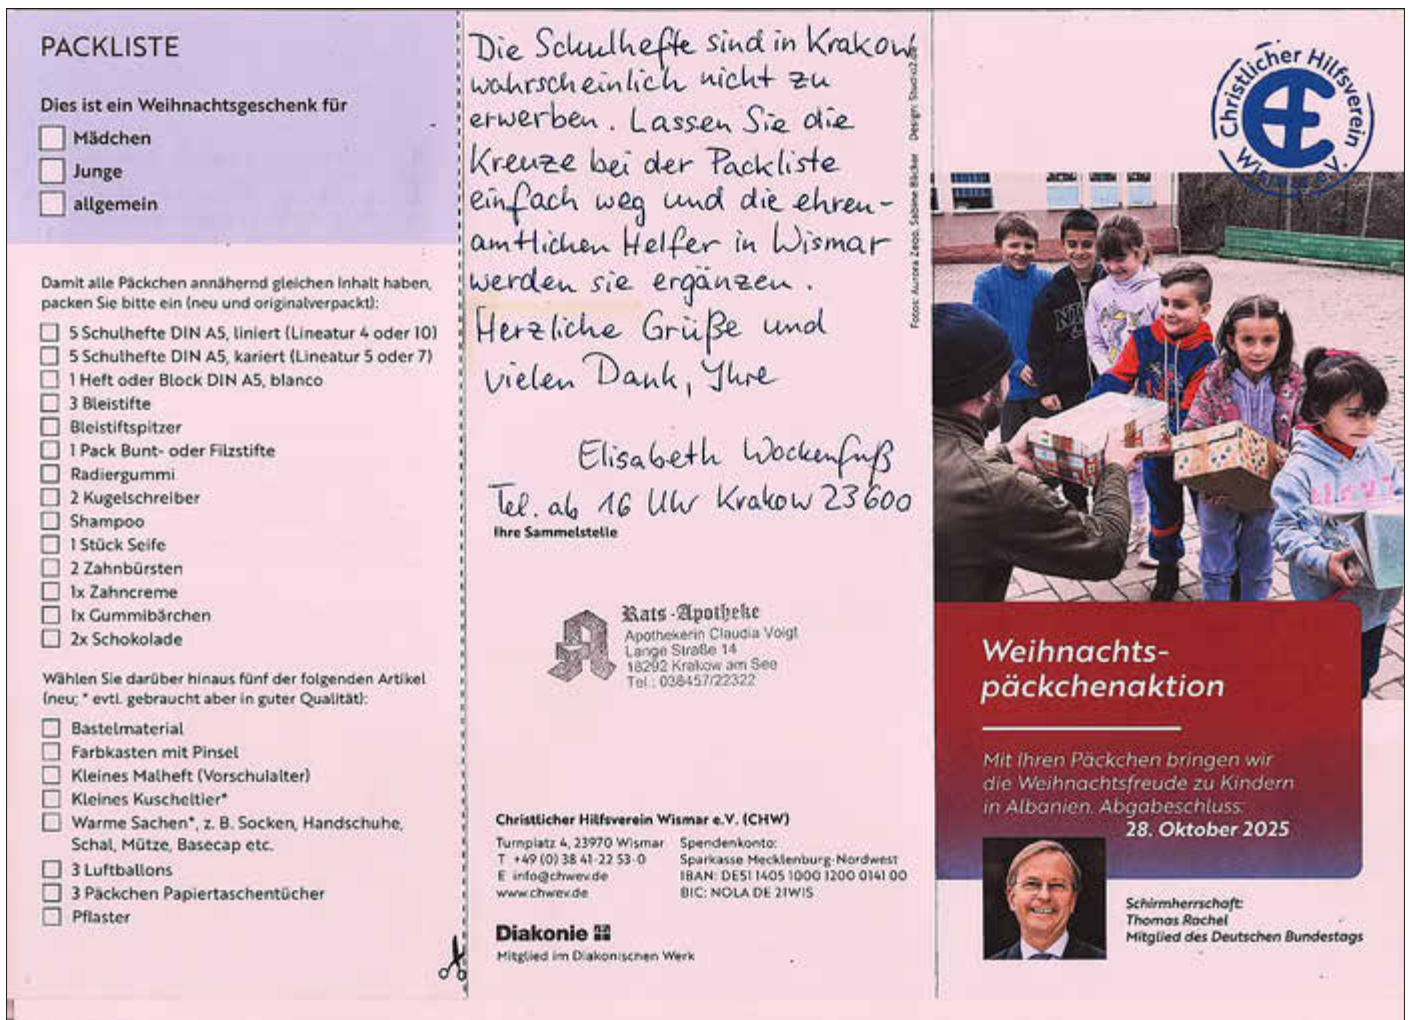 PACKLISTE
Dies ist ein Weihnachtsgeschenk für
Mädchen
Junge
allgemein
Damit alle Päckchen annähernd gleichen Inhalt haben,
packen Sie bitte ein (neu und originalverpackt):
5 Schulhefte DIN A5, liniert (Lineatur 4 oder 10)
5 Schulhefte DIN A5, kariert (Lineatur 5 oder 7)
1 Heft oder Block DIN A5, blanco
3 Bleistifte
Bleistiftspitzer
1 Pack Bunt- oder Filzstifte
Radiergummi
2 Kugelschreiber
Shampoo
1 Stück Seife
2 Zahnbürsten
1x Zahncreme
1x Gummibärchen
2x Schokolade
Wählen Sie darüber hinaus fünf der folgenden Artikel
(neu; * evtl. gebraucht aber in guter Qualität):
Bastelmaterial
Farbkasten mit Pinsel
Kleines Malheft (Vorschulalter)
Kleines Kuscheltier*
Warme Sachen*, z. B. Socken, Handschuhe,
Schal, Mütze, Basecap etc.
3 Luftballons
3 Päckchen Papiertaschentücher
Pflaster
Die Schulhefte sind in Krakow
wahrscheinlich nicht zu
erwerben. Lassen Sie die
Kreuze bei der Packliste
einfach weg und die ehren-
amtlichen Helfer in Wismar
werden sie ergänzen.
Herzliche Grüße und
vielen Dank, Ihre
Elisabeth Wockenfuß
Tel. ab 16 Uhr Krakow 23600
Ihre Sammelstelle
Rats-Apotheke
Apothekerin Claudia Voigt
Lange Straße 14
18292 Krakow am See
Tel.: 038457/22322
Christlicher Hilfsverein Wismar e.V. (CHW)
Turnplatz 4, 23970 Wismar
T +49 (0) 38 41-22 53-0
E info@chwev.de
www.chwev.de
Spendenkonto:
Sparkasse Mecklenburg-Nordwest
IBAN: DE51 1405 1000 1200 0141 00
BIC: NOLA DE 21WIS
Diakonie
Mitglied im Diakonischen Werk
Fotos: Aurora Zeqo, Sabine Bäcker Design: Studio2.de
Christlicher Hilfsverein
Wismar e.V.
Weihnachts-
päckchenaktion
Mit Ihren Päckchen bringen wir
die Weihnachtsfreude zu Kindern
in Albanien. Abgabeschluss:
28. Oktober 2025
Schirmherrschaft:
Thomas Rachel
Mitglied des Deutschen Bundestags